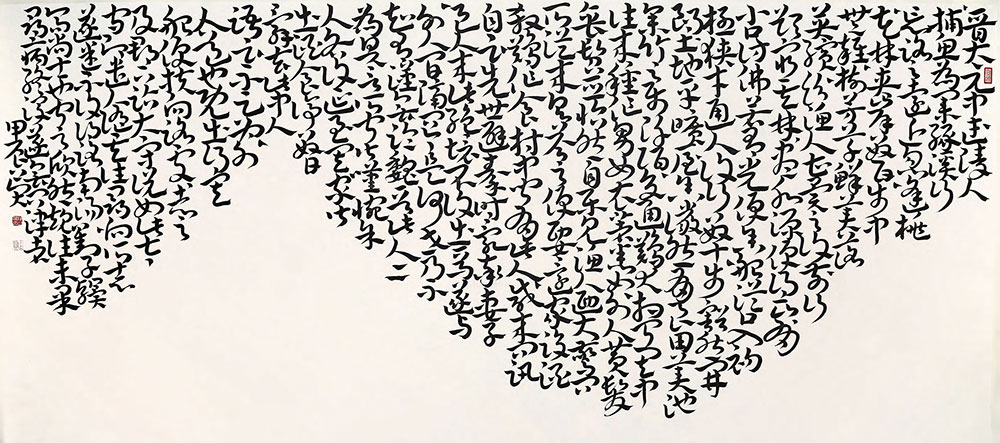 晉太元中武陵人
捕魚為業緣溪行
忘路之遠近忽逢桃
花林夾岸數百步中
無雜樹芳草鮮美落
英繽紛漁人甚異之復前行
欲窮其林林盡水源便得一山山有
小口彷彿若有光便舍船從口入初
極狹才通人復行數十步豁然開
朗土地平曠屋舍儼然有良田美池
桑竹之屬阡陌交通雞犬相聞其中
往來種作男女衣著悉如外人黃髮
垂髫并怡然自樂見漁人乃大驚問
所從來具答之便要還家設酒
殺雞作食村中聞有此人咸來問訊
自云先世避秦時亂率妻子
邑人來此絕境不復出焉遂與
外人間隔問今是何世乃不
知有漢無論魏晉此人一一
為具言所聞皆嘆惋餘
人各復延至其家皆
出酒食停數日
辭去此中人
語云不足為外
人道也既出得其
船便扶向路處處志之
及郡下詣太守說如此太守
即遣人隨其往尋向所志
遂迷不復得路南陽劉子驥
高尚士也聞之欣然規往未果
尋病終後遂無問津者